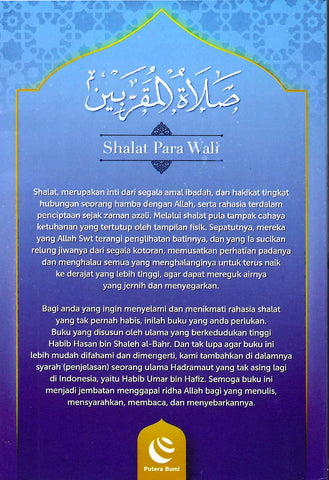 صلاة المقربين
Shalat Para Wali
Shalat, merupakan inti dari segala amal ibadah, dan hakikat tingkat
hubungan seorang hamba dengan Allah, serta rahasia terdalam
penciptaan sejak zaman azali. Melalui shalat pula tampak cahaya
ketuhanan yang tertutup oleh tampilan fisik. Sepatutnya, mereka
yang Allah Swt terangi penglihatan batinnya, dan yang Ia sucikan
relung jiwanya dari segala kotoran, memusatkan perhatian padanya
dan menghalau semua yang menghalanginya untuk terus naik
ke derajat yang lebih tinggi, agar dapat mereguk airnya
yang jernih dan menyegarkan.
Bagi anda yang ingin menyelami dan menikmati rahasia shalat
yang tak pernah habis, inilah buku yang anda perlukan.
Buku yang disusun oleh ulama yang berkedudukan tinggi
Habib Hasan bin Shaleh al-Bahr. Dan tak lupa agar buku ini
lebih mudah difahami dan dimengerti, kami tambahkan di dalamnya
syarah (penjelasan) seorang ulama Hadramaut yang tak asing lagi
di Indonesia, yaitu Habib Umar bin Hafiz. Semoga buku ini
menjadi jembatan menggapai ridha Allah bagi yang menulis,
mensyarahkan, membaca, dan menyebarkannya.
Putera Bumi